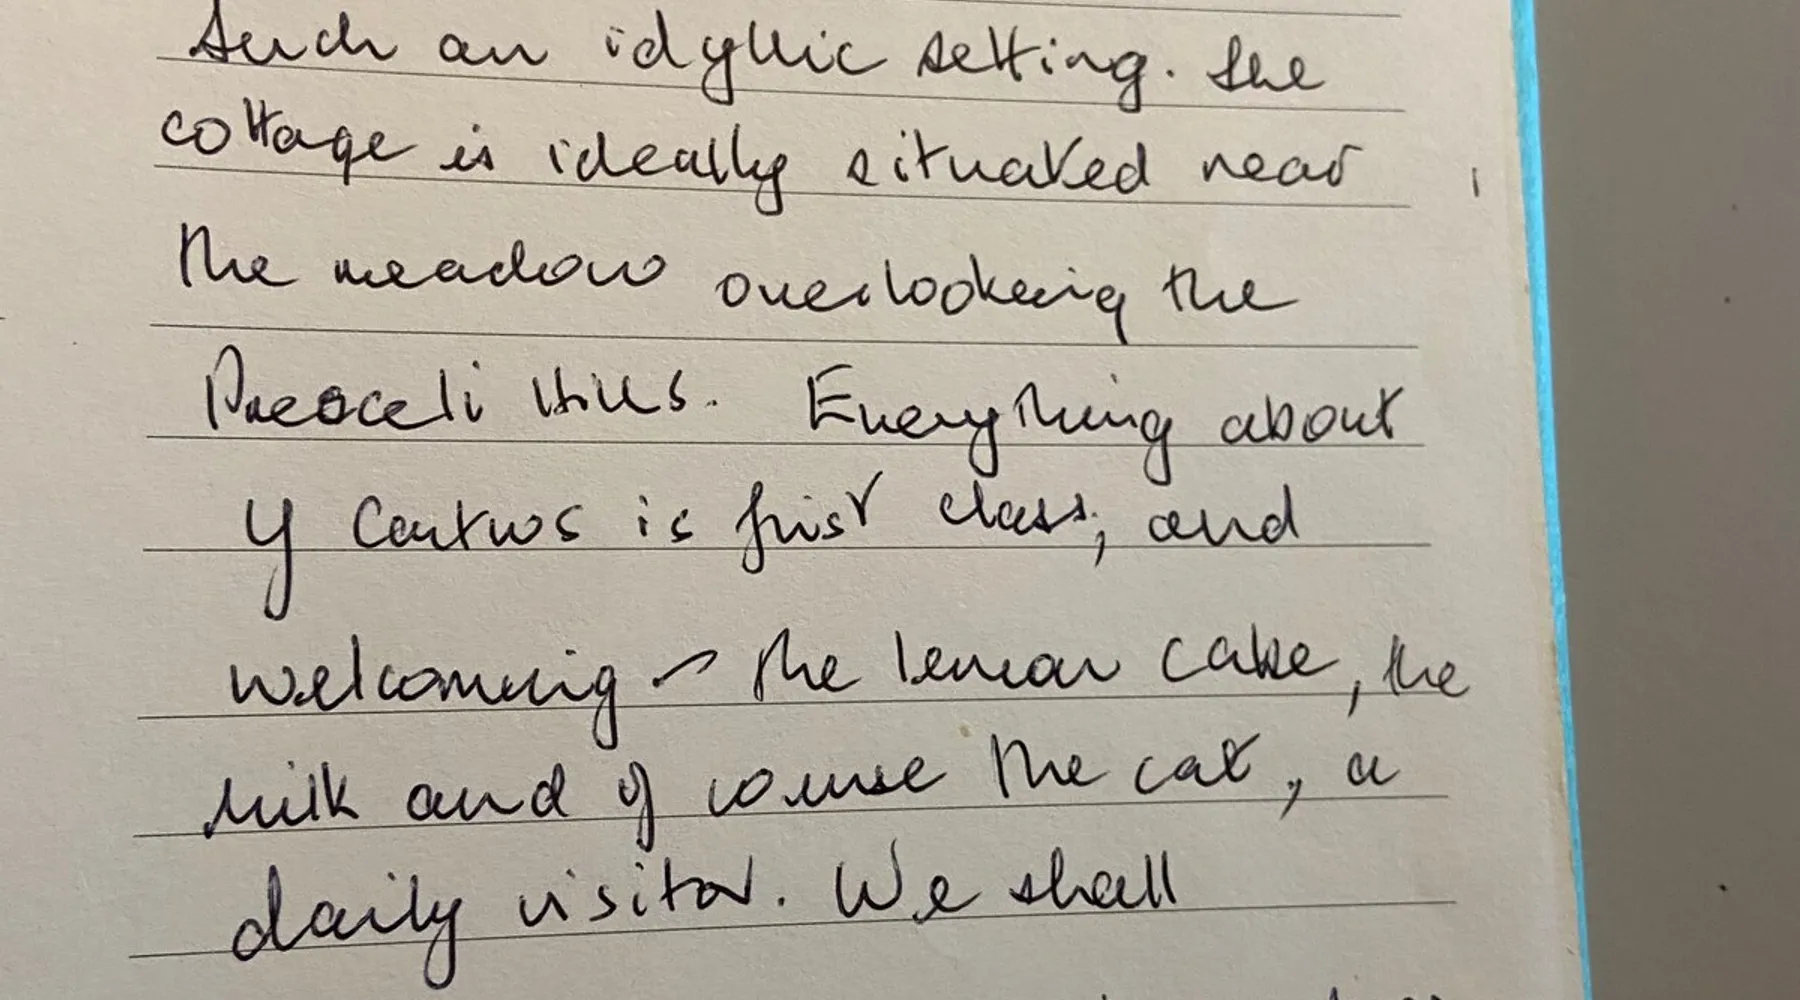 Such an idyllic setting. The
cottage is ideally situated near
the meadow overlooking the
Preseli Hills. Everything about
Y is first class, and
welcoming - the lemon cake, the
milk and of course the cat, a
daily visitor. We shall